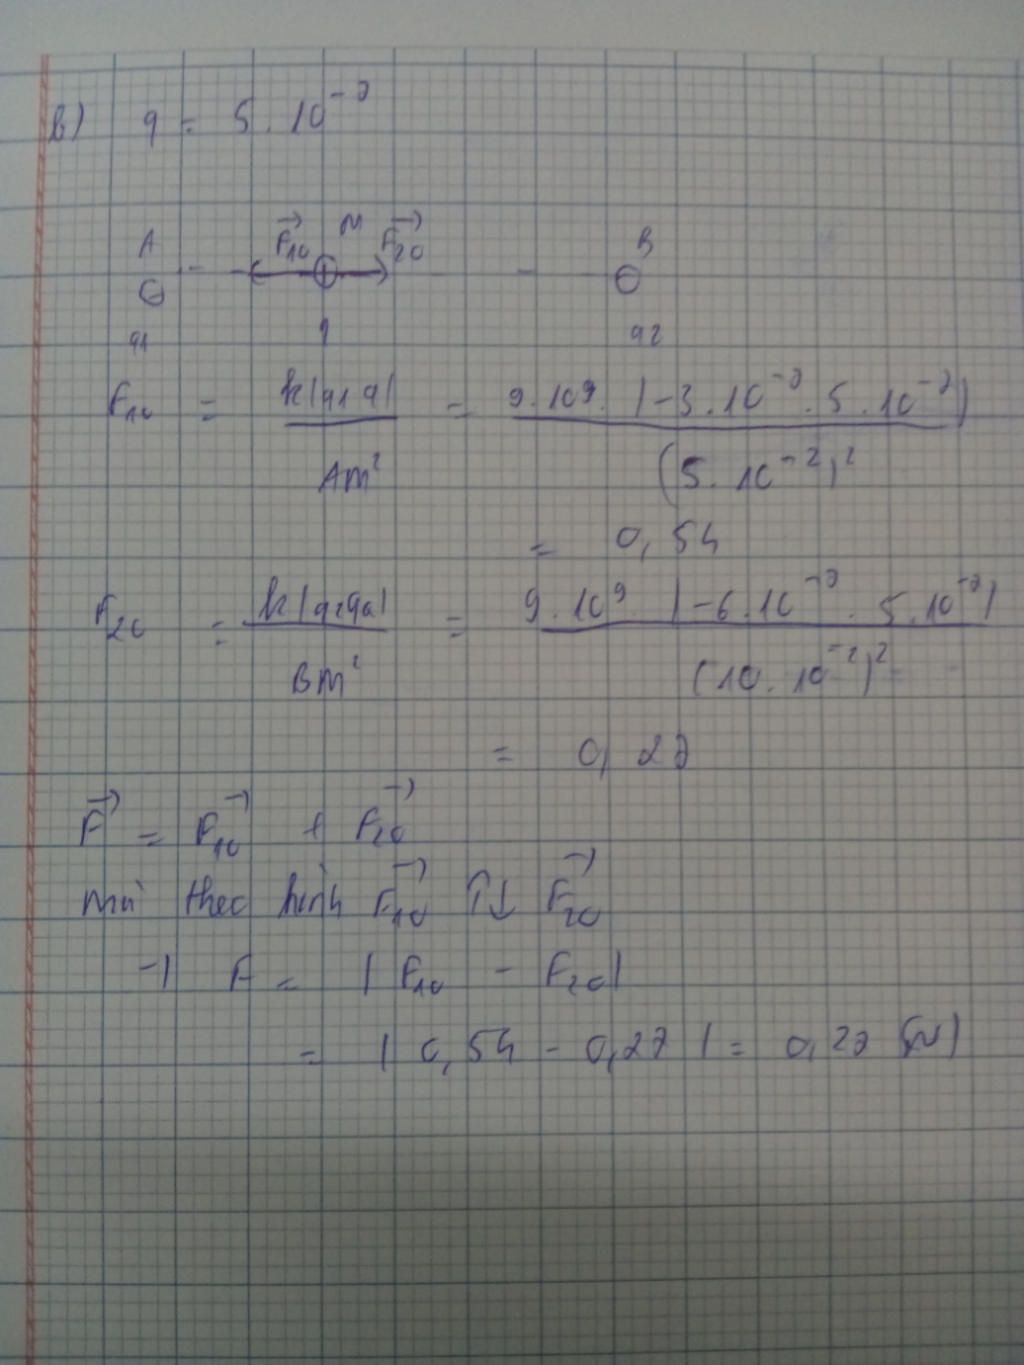 b) q = 5 . 10⁻⁷
A F₁₀→ M F₂₀→ B
⊖ ⊕ ⊖
q1 q q2
F₁₀ = k|q1 q| / AM² = 9.10⁹ . |-3.10⁻⁷ . 5.10⁻⁷| / (5.10⁻²)²
= 0,54
F₂₀ = k|q2q0| / BM² = 9.10⁹ |-6.10⁻⁷ . 5.10⁻⁷| / (10.10⁻²)²
= 0,27
F→ = F₁₀→ + F₂₀→
mà theo hình F₁₀→ ↑↓ F₂₀→
→ F = |F₁₀ - F₂₀|
= |0,54 - 0,27| = 0,27 (N)